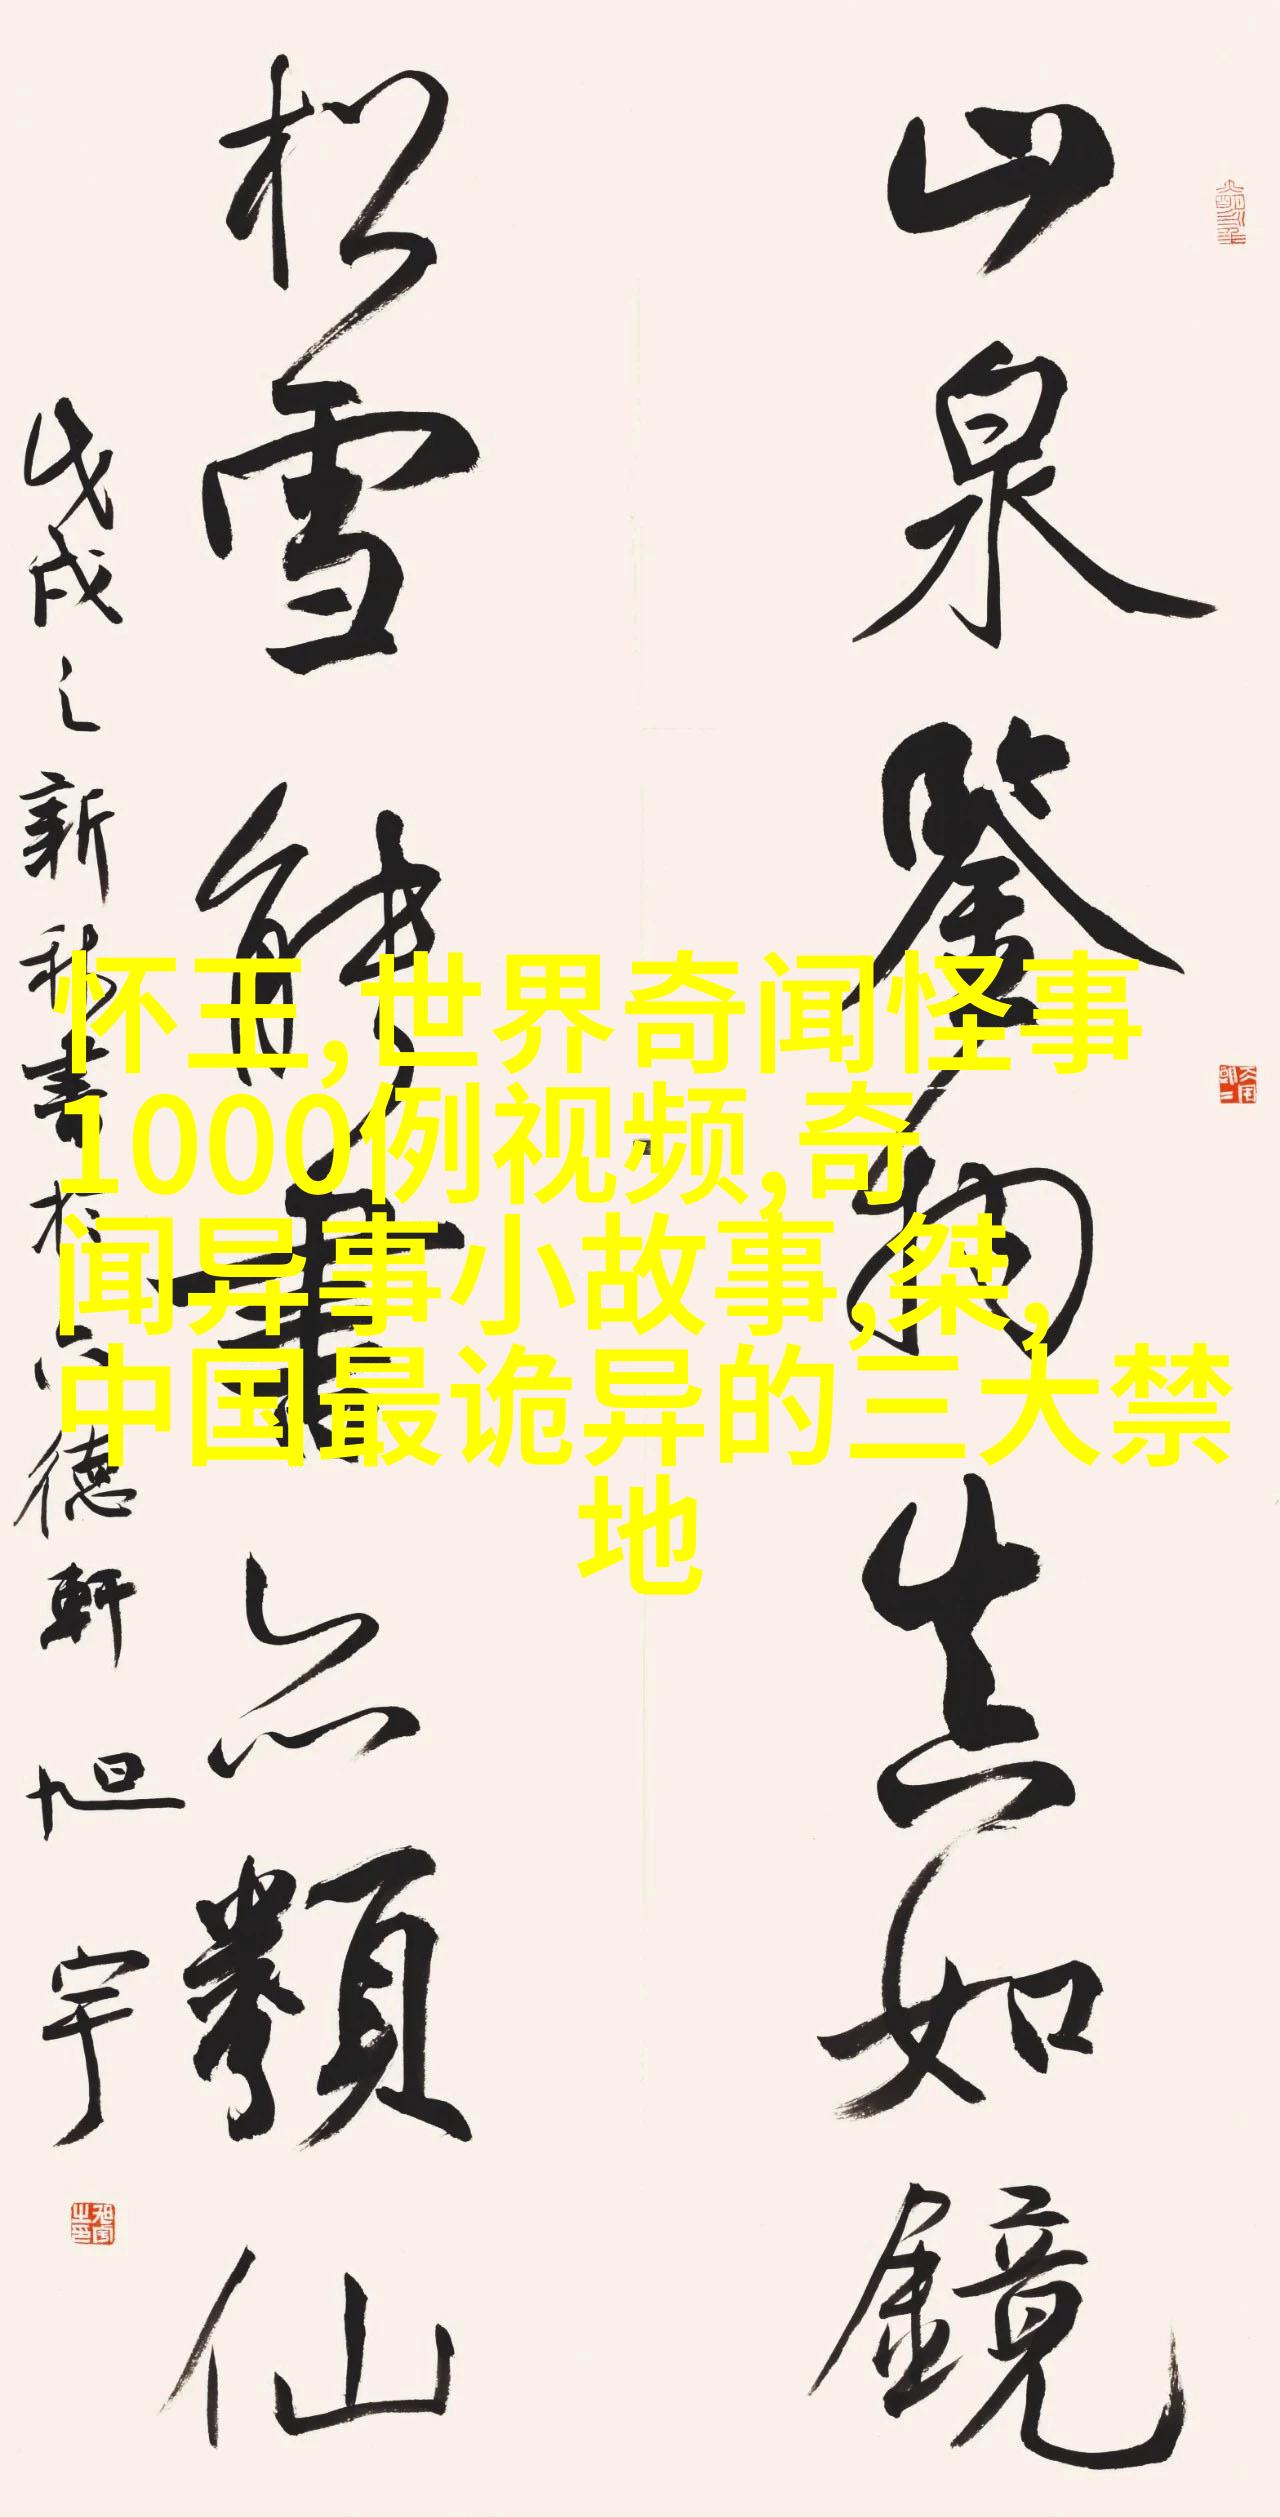 山泉鑒物真如鏡
松雪能亦類仙
戊戌之新秋書於德軒 旭宇
怀王,世界奇闻怪事
1000例视频,奇
闻异事小故事,桀,
中国最诡异的三大禁
地